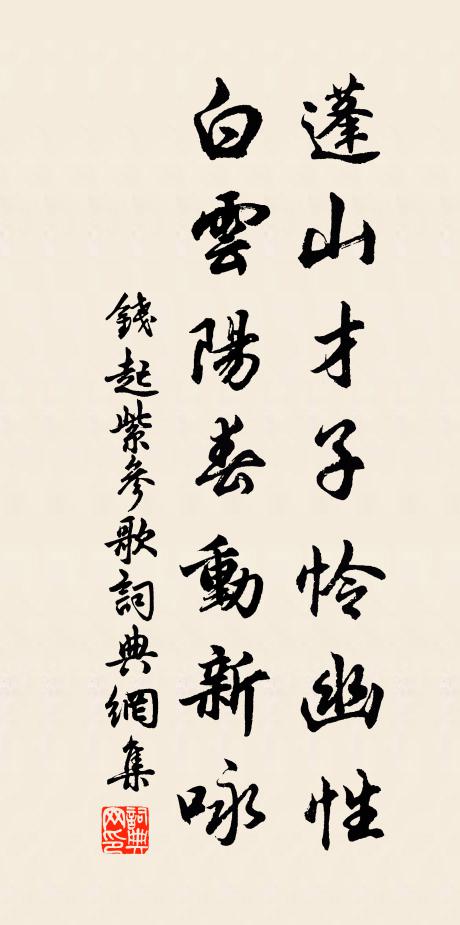 蓬山才子怜幽性
白雲陽春動新咏
錢起紫參歌詞典網集
詞典网印